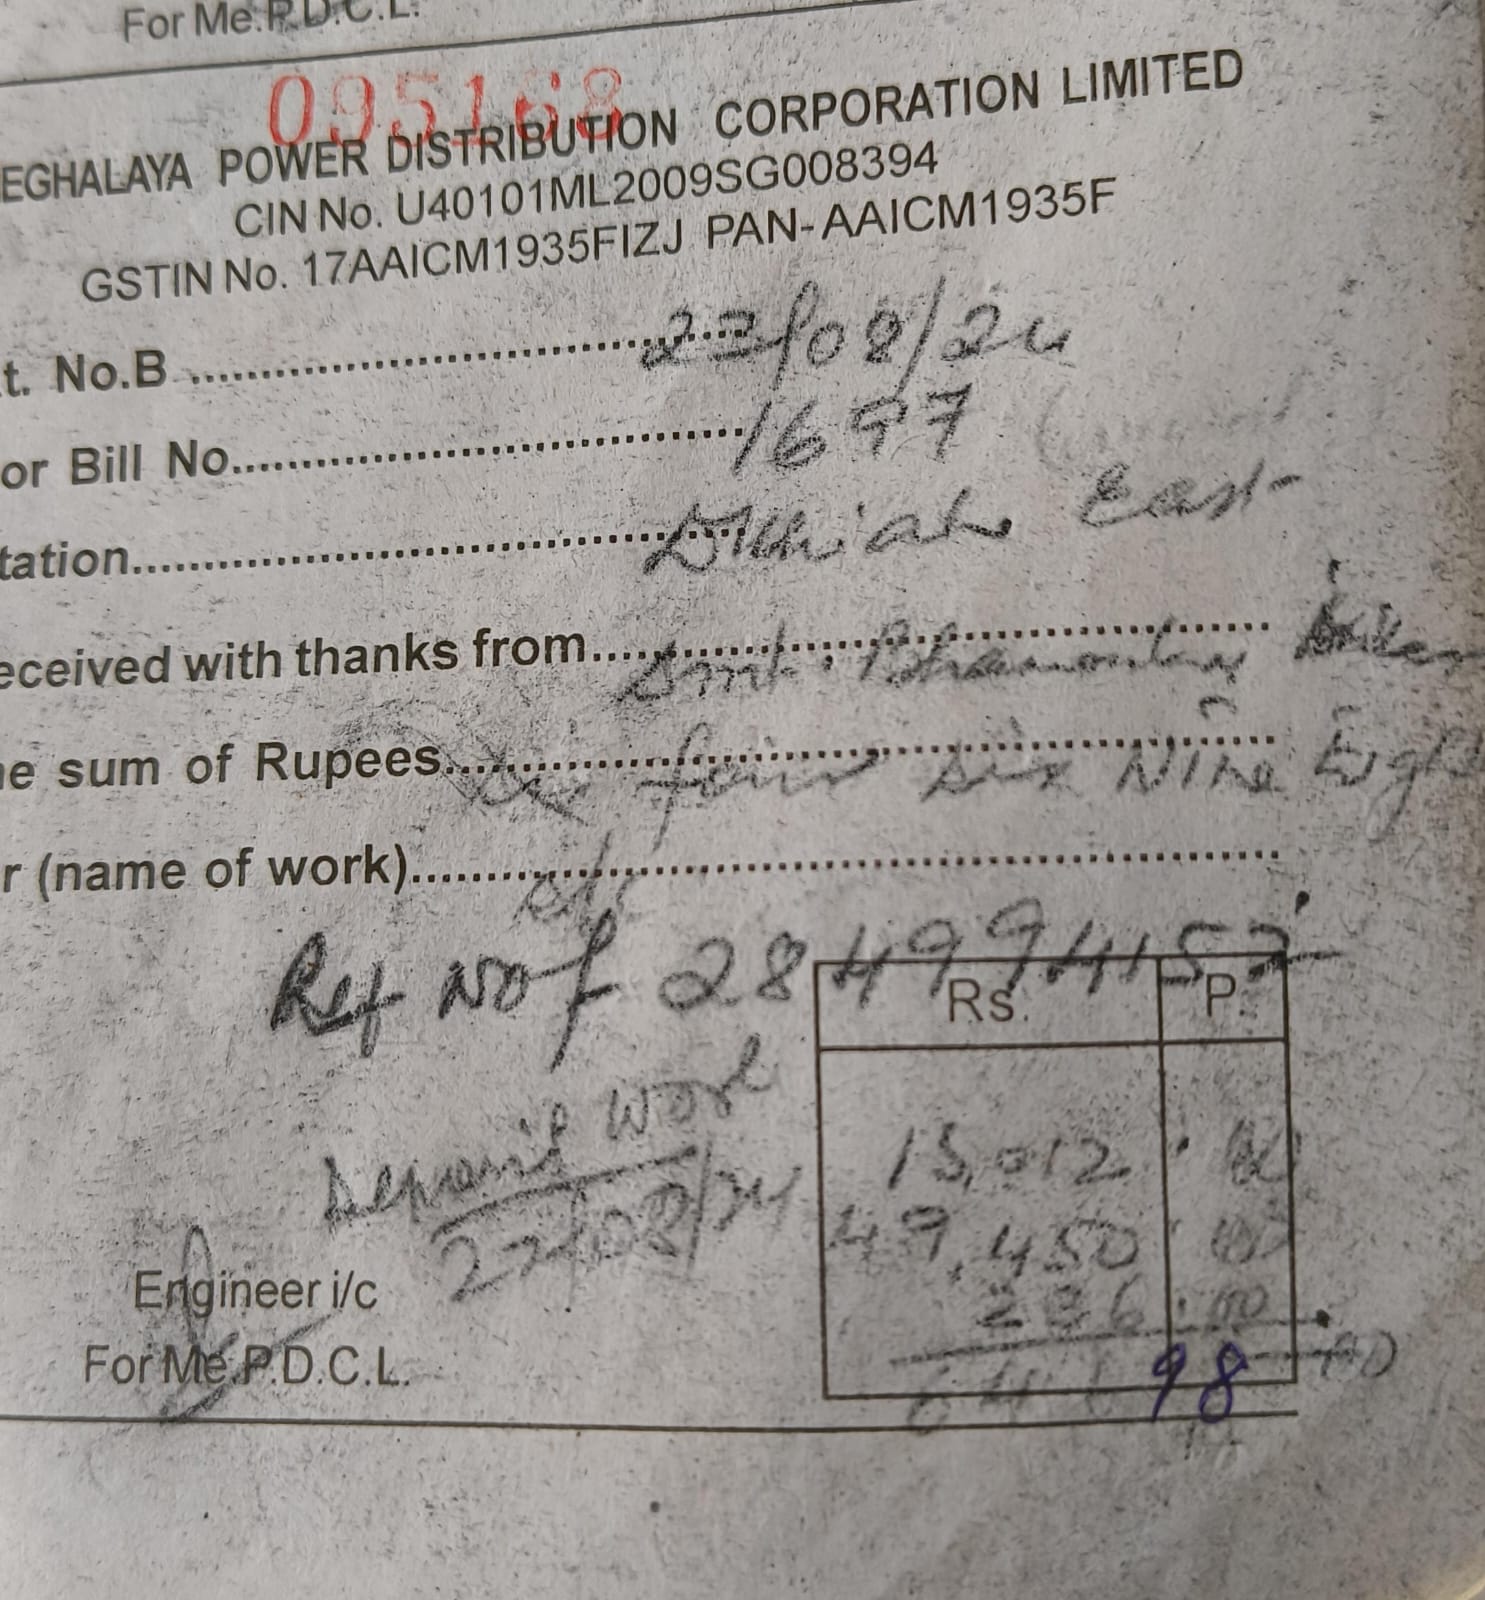 For Me.P.D.C.L.
095168
EGHALAYA POWER DISTRIBUTION CORPORATION LIMITED
CIN No. U40101ML2009SG008394
GSTIN No. 17AAICM1935FIZJ PAN-AAICM1935F
t. No.B 23/08/24
or Bill No. 1697
tation East
eceived with thanks from Smti.
e sum of Rupees four six Nine Eight
r (name of work)
Ref No f 2849994152
Rs. P.
Deposit Work
15,012
27/08/24
49,450
236.00
Engineer i/c
98
For Me.P.D.C.L.